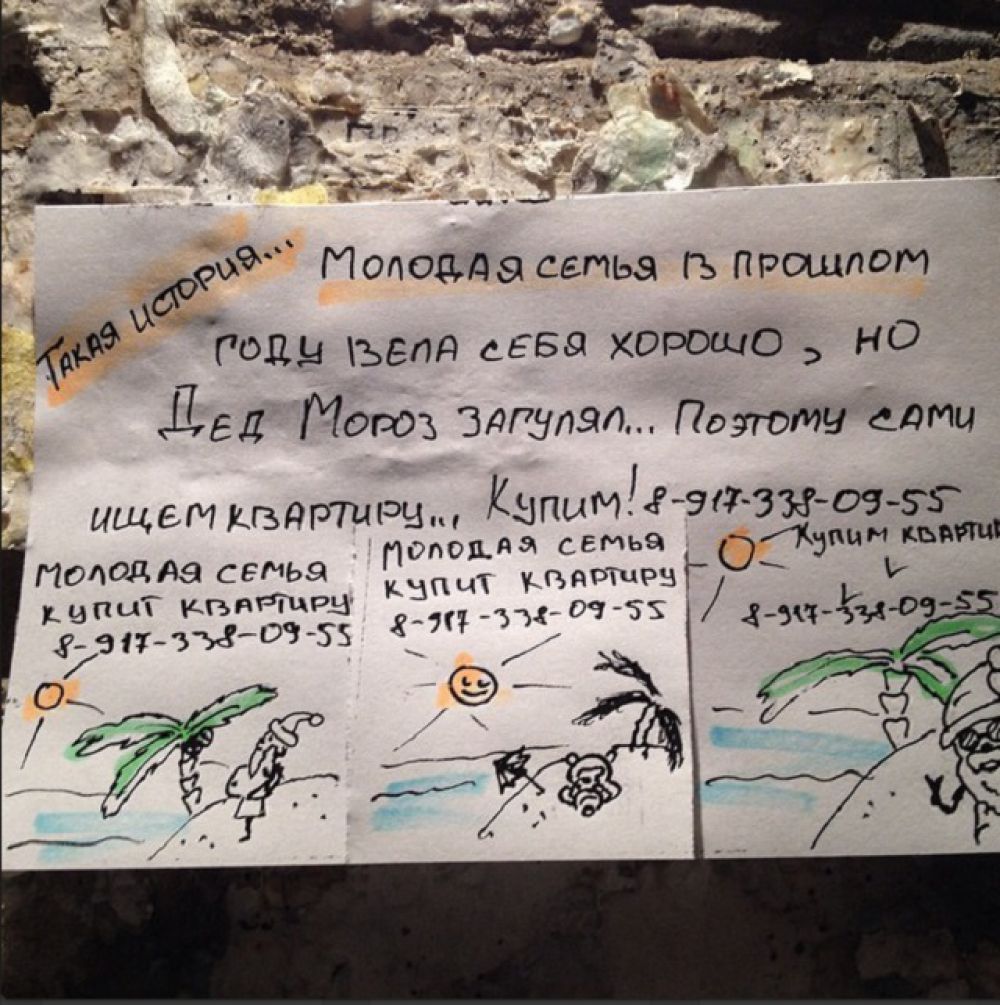 Такая история...
Молодая семья в прошлом
году вела себя хорошо, но
Дед Мороз загулял... Поэтому сами
ищем квартиру... Купим! 8-917-338-09-55
Молодая семья
купит квартиру
8-917-338-09-55
Молодая семья
купит квартиру
8-917-338-09-55
Купим кварти
8-917-338-09-55